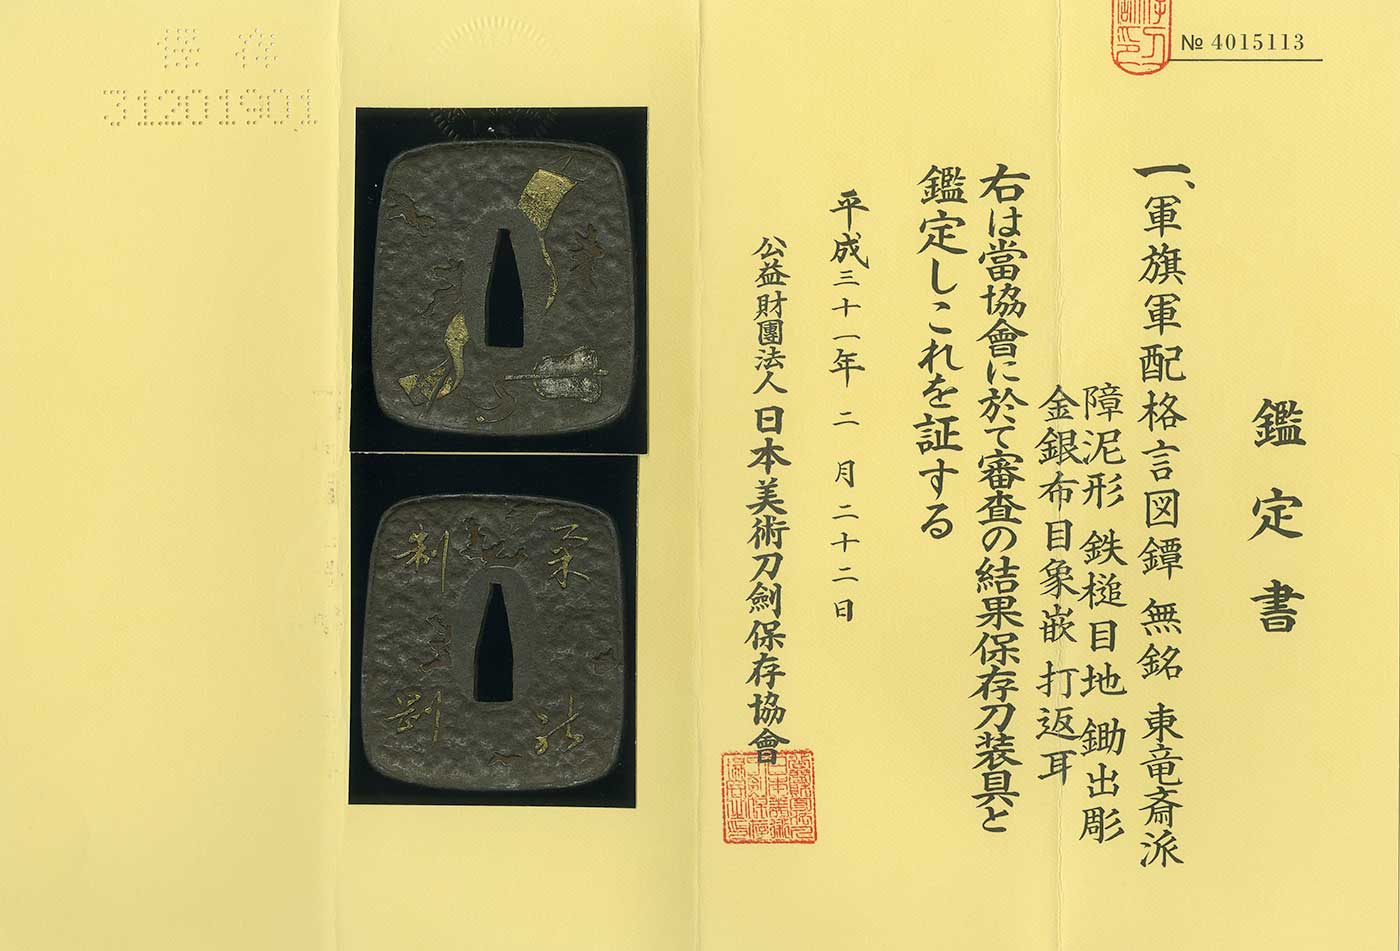 № 4015113
鑑定書
一、軍旗軍配格言図鐔 無銘 東竜斎派
障泥形 鉄槌目地 鋤出彫
金銀布目象嵌 打返耳
右は當協會に於て審査の結果保存刀装具と
鑑定しこれを証する
平成三十一年 二月二十二日
公益財團法人 日本美術刀劍保存協會
保存
31201901
柔
能
制
剛